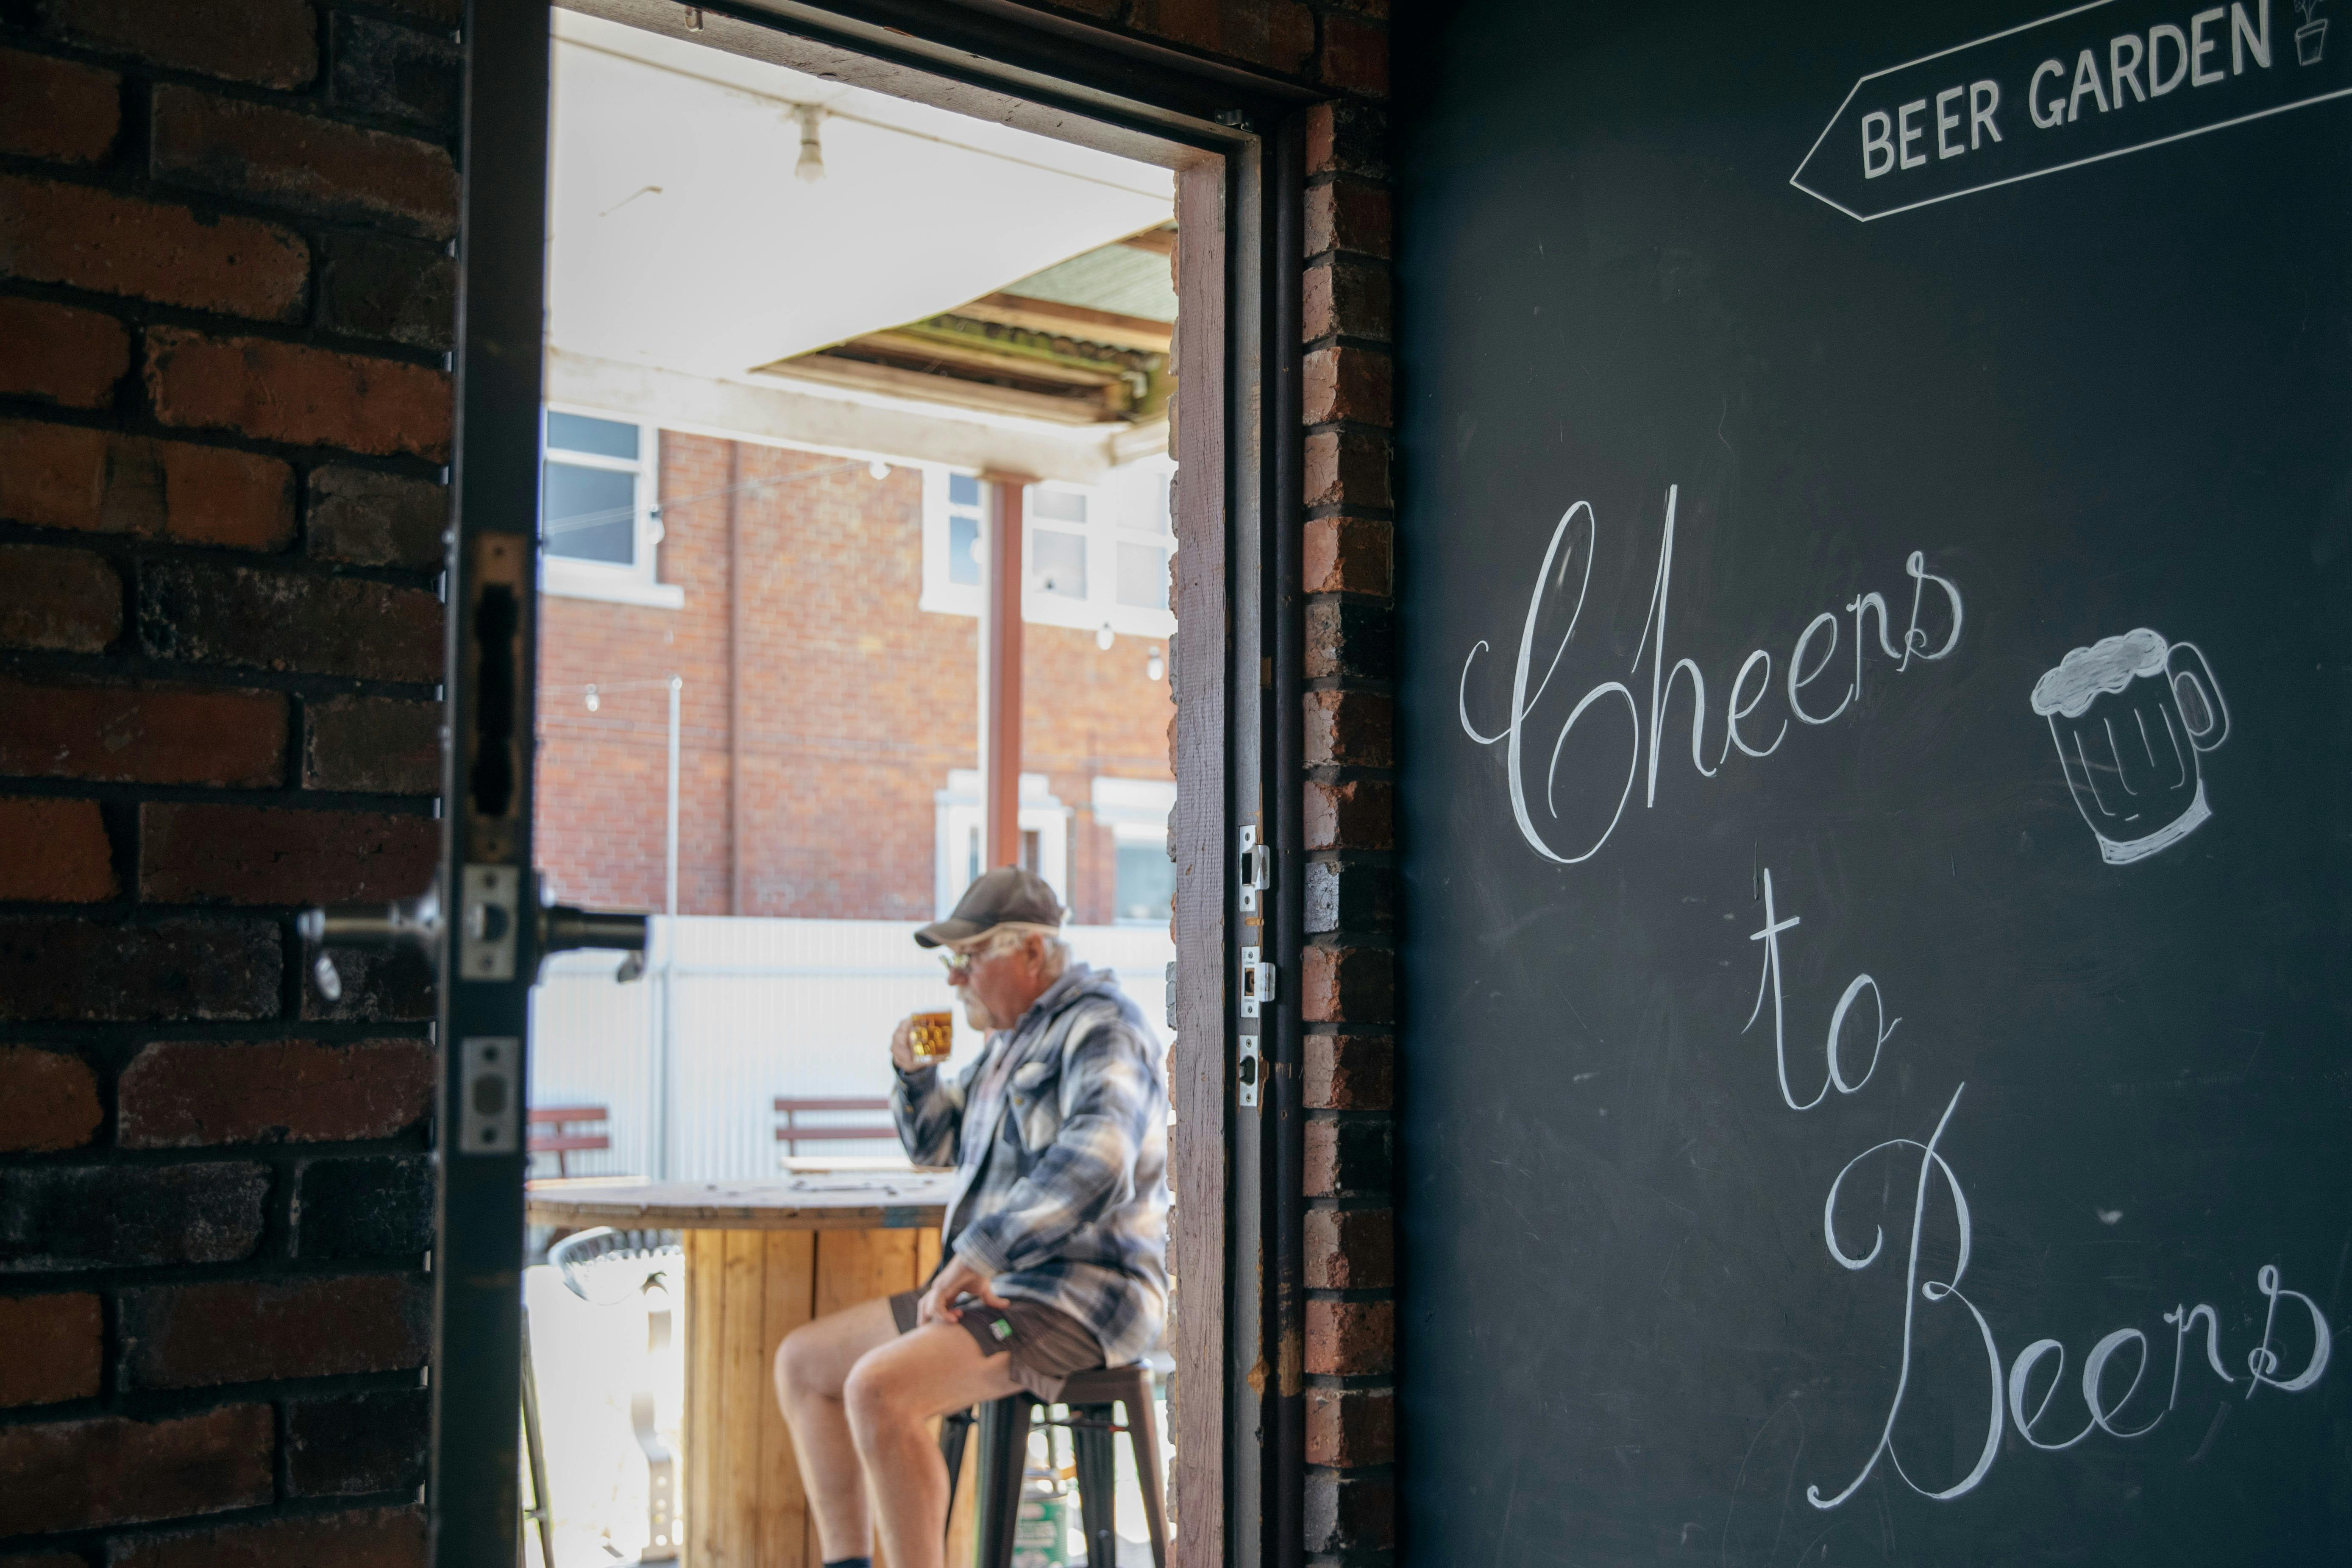 BEER GARDEN
Cheers
to
Beers